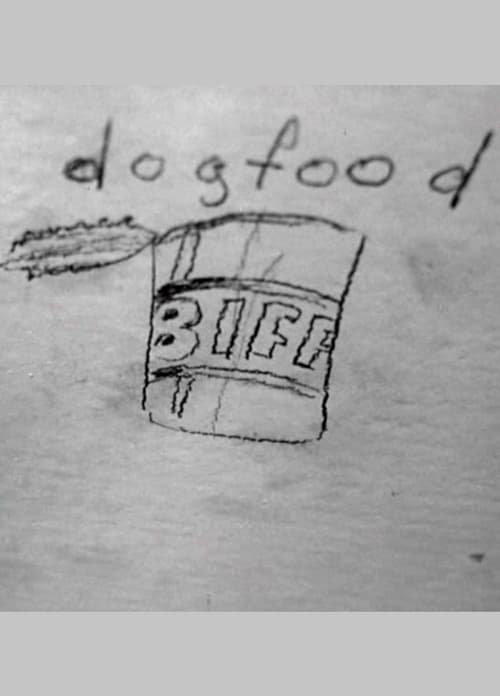 dogfood
BIFF